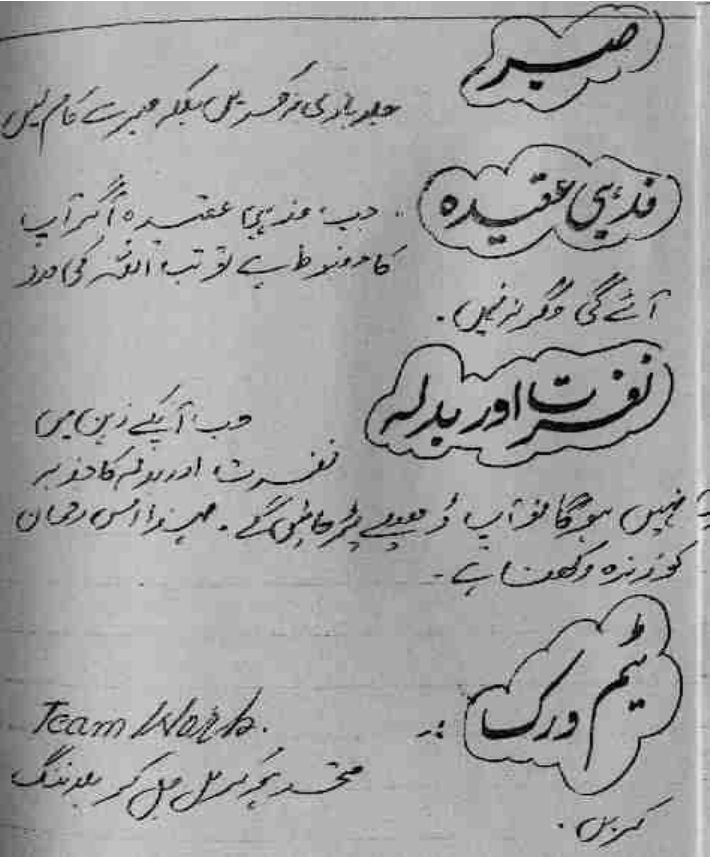 صبر
جلد بازی نہ کریں بلکہ صبر سے کام لیں
مذہبی عقیدہ
. جب مذہبی عقیدہ اگر آپ
کا مضبوط ہے تو تب اللہ کی مدد
آئے گی وگرنہ نہیں .
نفرت اور بدلہ
جب آپکے ذہن میں
نفرت اور بدلہ کا جذبہ
نہیں ہوگا تو آپ پڑ جائیں گے . لہذا اس رحجان
کو زندہ رکھنا ہے -
ٹیم ورک :-
Team Work.
متحد ہو کر مل جل کر پلاننگ
کریں .